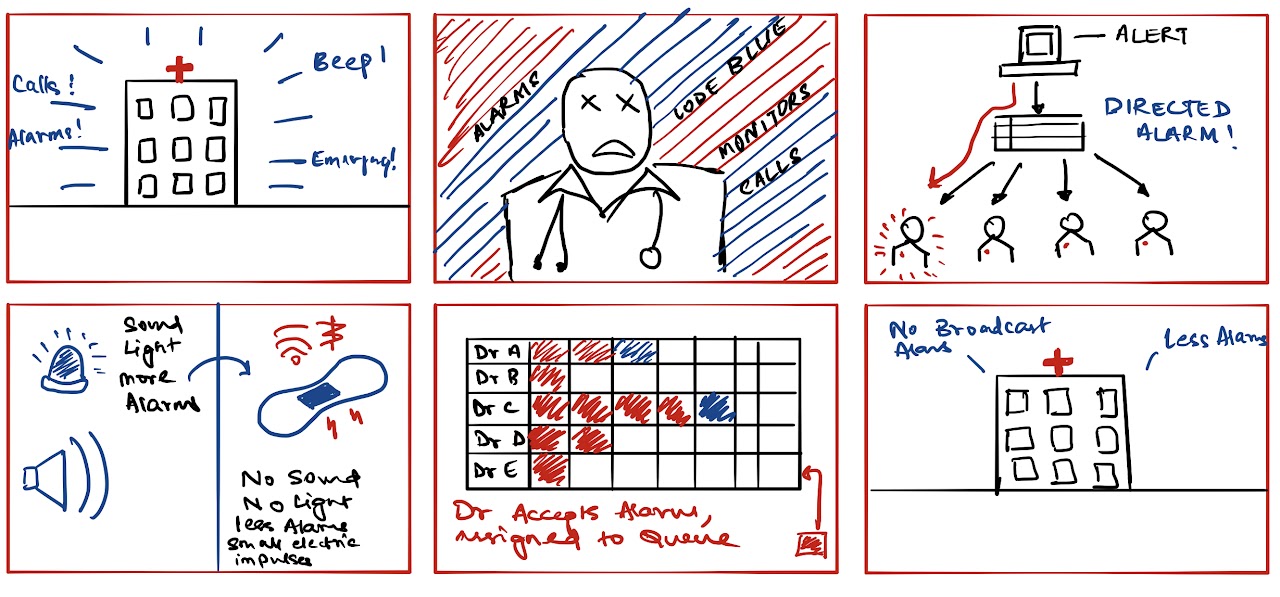 Calls!
Alarms!
Beep!
Emergng!
ALARMS
CODE BLUE
MONITORS
CALLS
ALERT
DIRECTED
ALARM!
Sound
Light
more
Alarms
No Sound
No Light
less Alarms
small electric
impulses
Dr A
Dr B
Dr C
Dr D
Dr E
Dr Accepts Alarm,
assigned to Queue
No Broadcast
Alarms
less Alarms